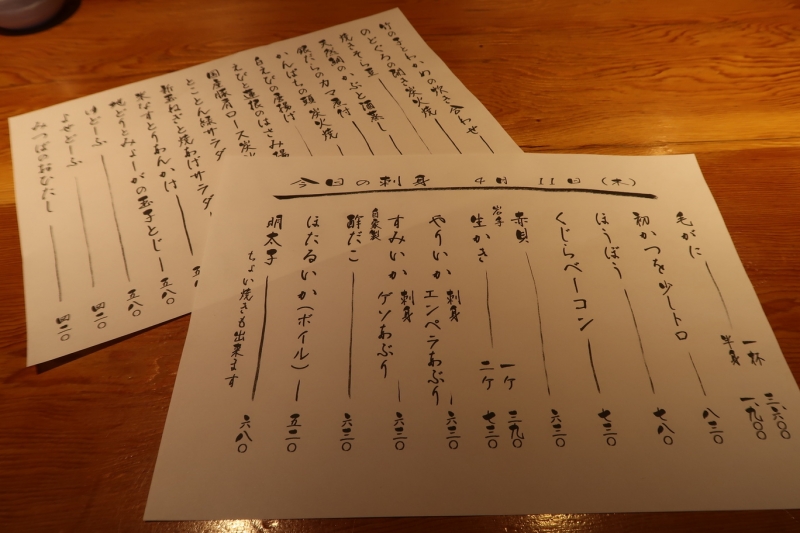 今日の刺身 4月11日(木)
毛がに 一杯 三、六〇〇
半身 一、九〇〇
初かつを 少しトロ 八三〇
ほうぼう 七八〇
くじらベーコン 七三〇
赤貝 六三〇
岩手 生かき 一ケ 三九〇
二ケ 七三〇
やりいか 刺身 エンペラあぶり 六三〇
すみいか 刺身 ゲソあぶり 六三〇
自家製 酢だこ 六三〇
ほたるいか(ボイル) 五二〇
明太子 六八〇
ちょい焼きも出来ます
竹の子と の炊き合わせ
のどぐろの開き炭火焼
焼きそら豆
天然鯛のかぶと酒蒸し
銀だらのカマ煮付
かんぱちの頭炭火焼
白えびの唐揚げ
えびと蓮根のはさみ揚
国産豚肩ロース炭火
とことん サラダ
新玉ねぎと焼あげサラダ
米なすとりあんかけ 五
とみょーがの玉子とじ 五八〇
五八〇
よせどーふ 四二〇
みつばのおひたし 四二〇